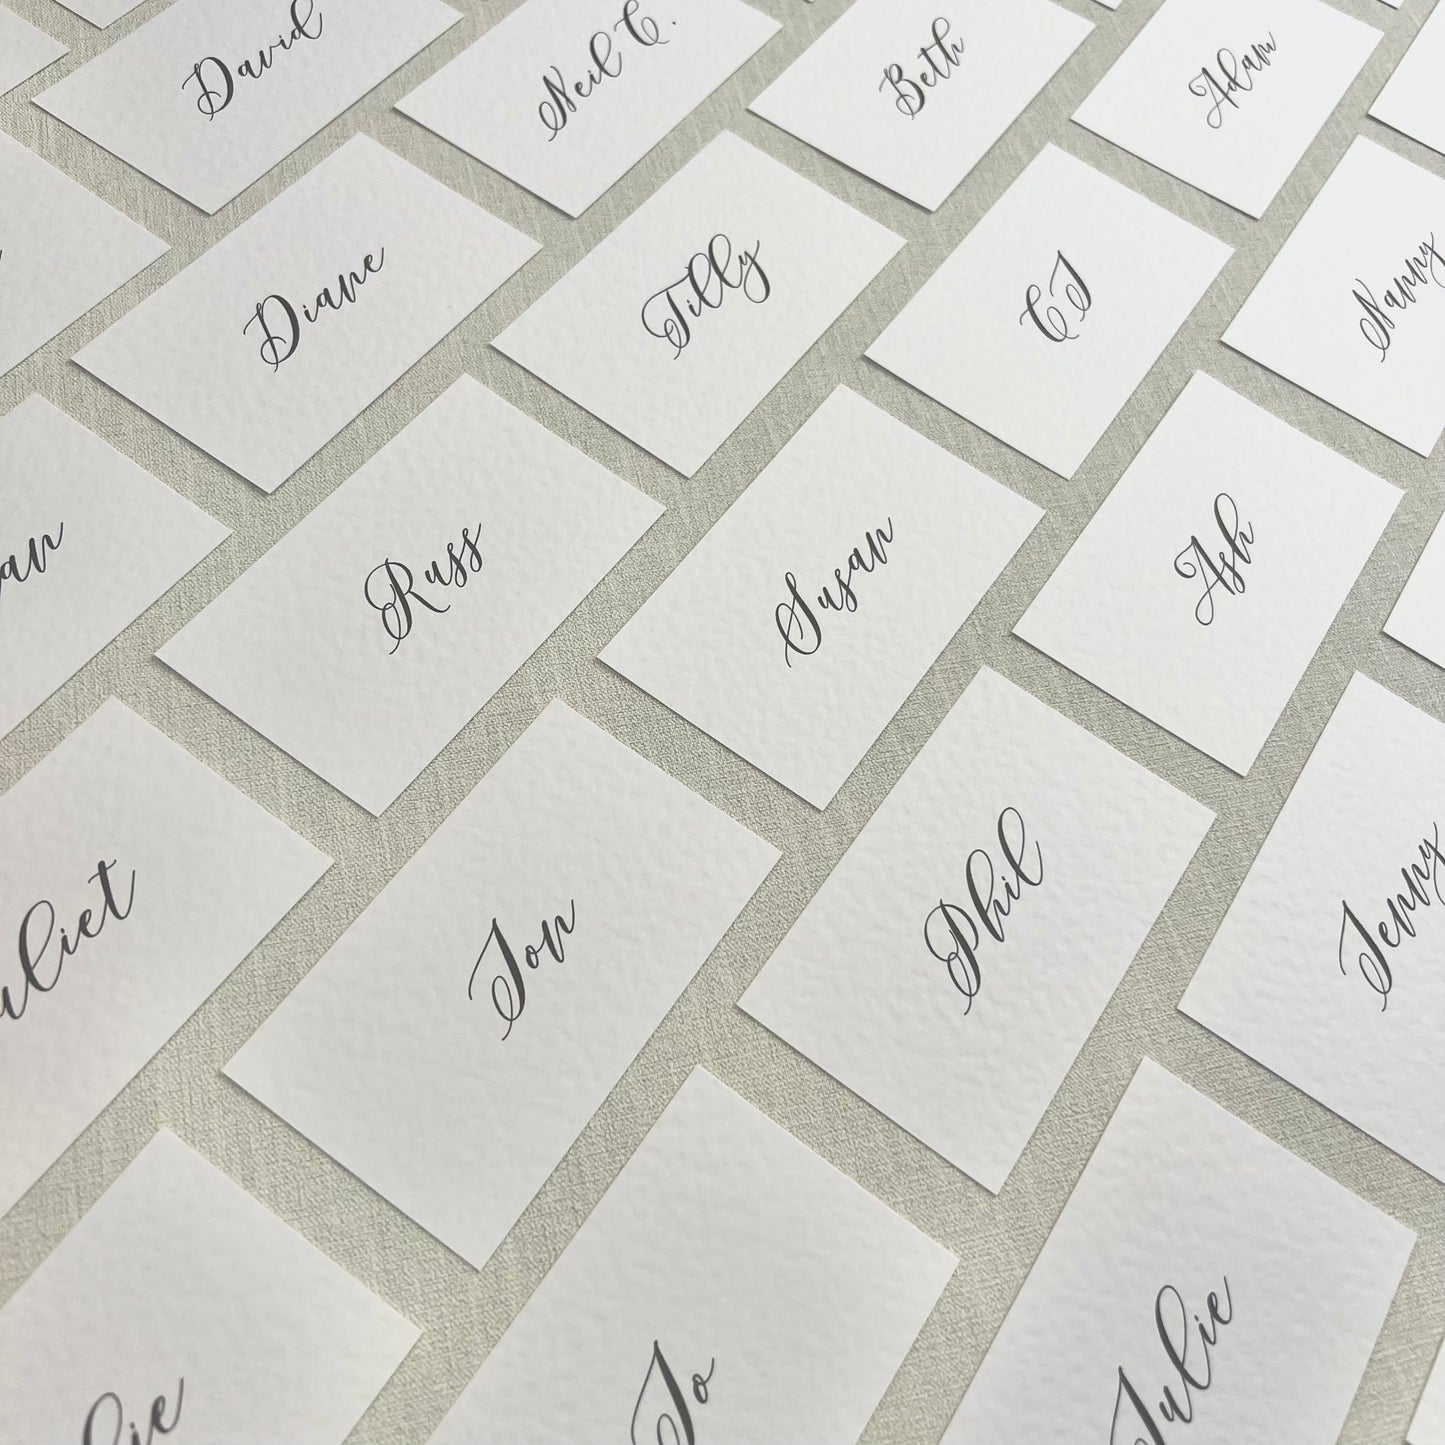 David
Neil C.
Beth
Adam
Diane
Tilly
CJ
Nanny
an
Russ
Susan
Ash
uliet
Jon
Phil
Jenny
lie
Jo
Julie